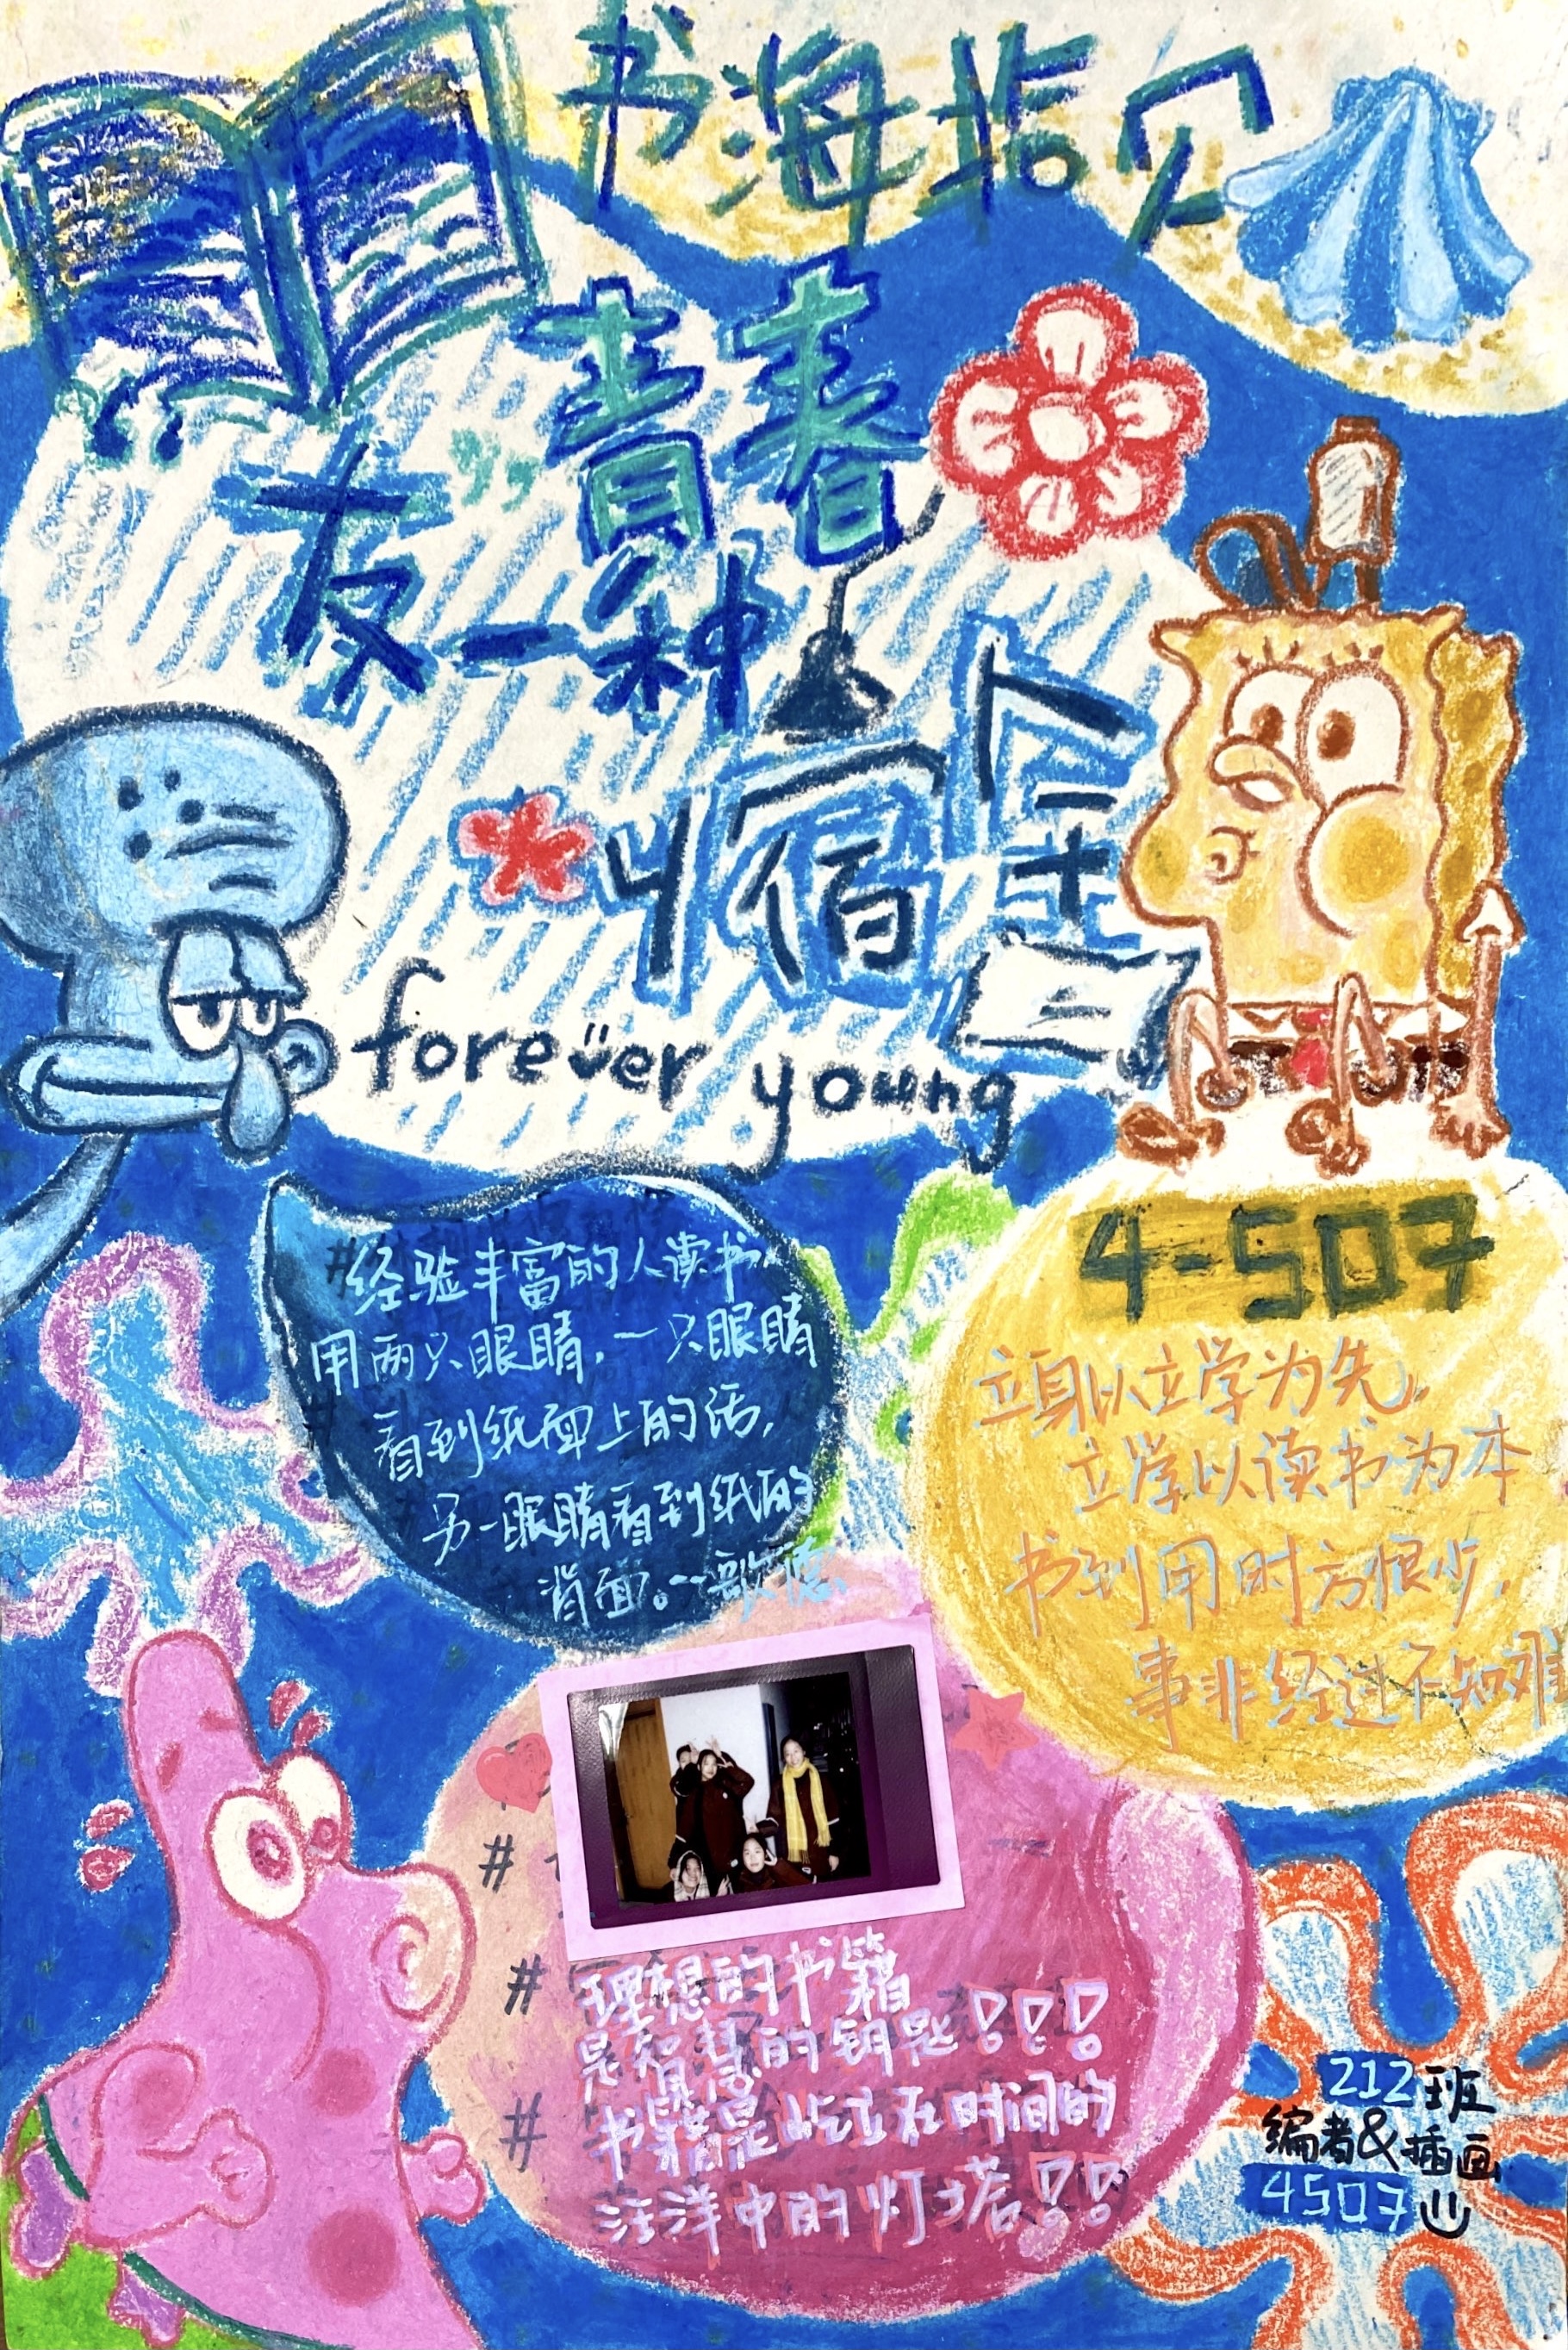 书海拾贝
青春
友一种
叫宿舍
forever young
#经验丰富的人读书
用两只眼睛，一只眼睛
看到纸面上的话，
另一眼睛看到纸的
背面。一歌德
4-507
立身以立学为先，
立学以读书为本
书到用时方恨少，
事非经过不知难
#
#
理想的书籍
是智慧的钥匙!!!
#
书籍是屹立在时间的
汪洋中的灯塔!!
212班
编者&插画
4507